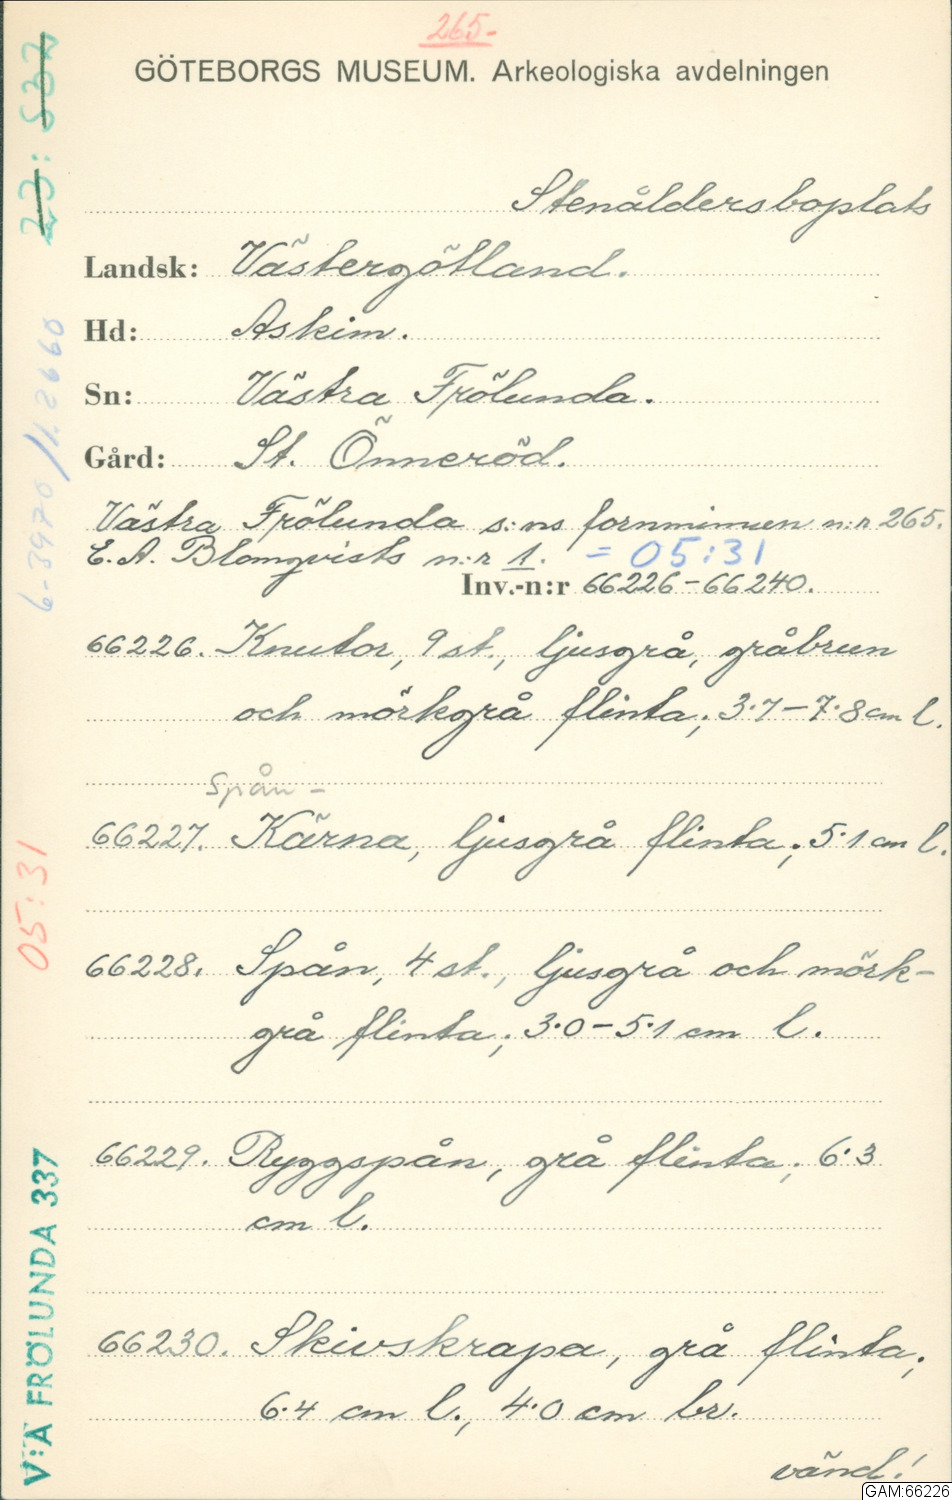 265-
GÖTEBORGS MUSEUM. Arkeologiska avdelningen
Stenåldersboplats
Landsk: Västergötland.
Hd: Askim.
Sn: Västra Frölunda.
Gård: St. Önneröd.
Västra Frölunda s:ns fornminnen n:r 265.
E. A. Blomqvists n:r 1. = 05:31
Inv.-n:r 66226-66240.
66226. Knutor, 9 st., ljusgrå, gråbrun
och mörkgrå flinta; 3·7-7·8 cm l.
Spån-
66227. Kärna, ljusgrå flinta; 5·1 cm l.
66228. Spån, 4 st., ljusgrå och mörk-
grå flinta; 3·0-5·1 cm l.
66229. Ryggspån, grå flinta; 6·3
cm l.
66230. Skivskrapa, grå flinta;
6·4 cm l., 4·0 cm br.
vänd!
23: 537
6-3970/1.2660
05:31
V:A FRÖLUNDA 337
GAM:66226